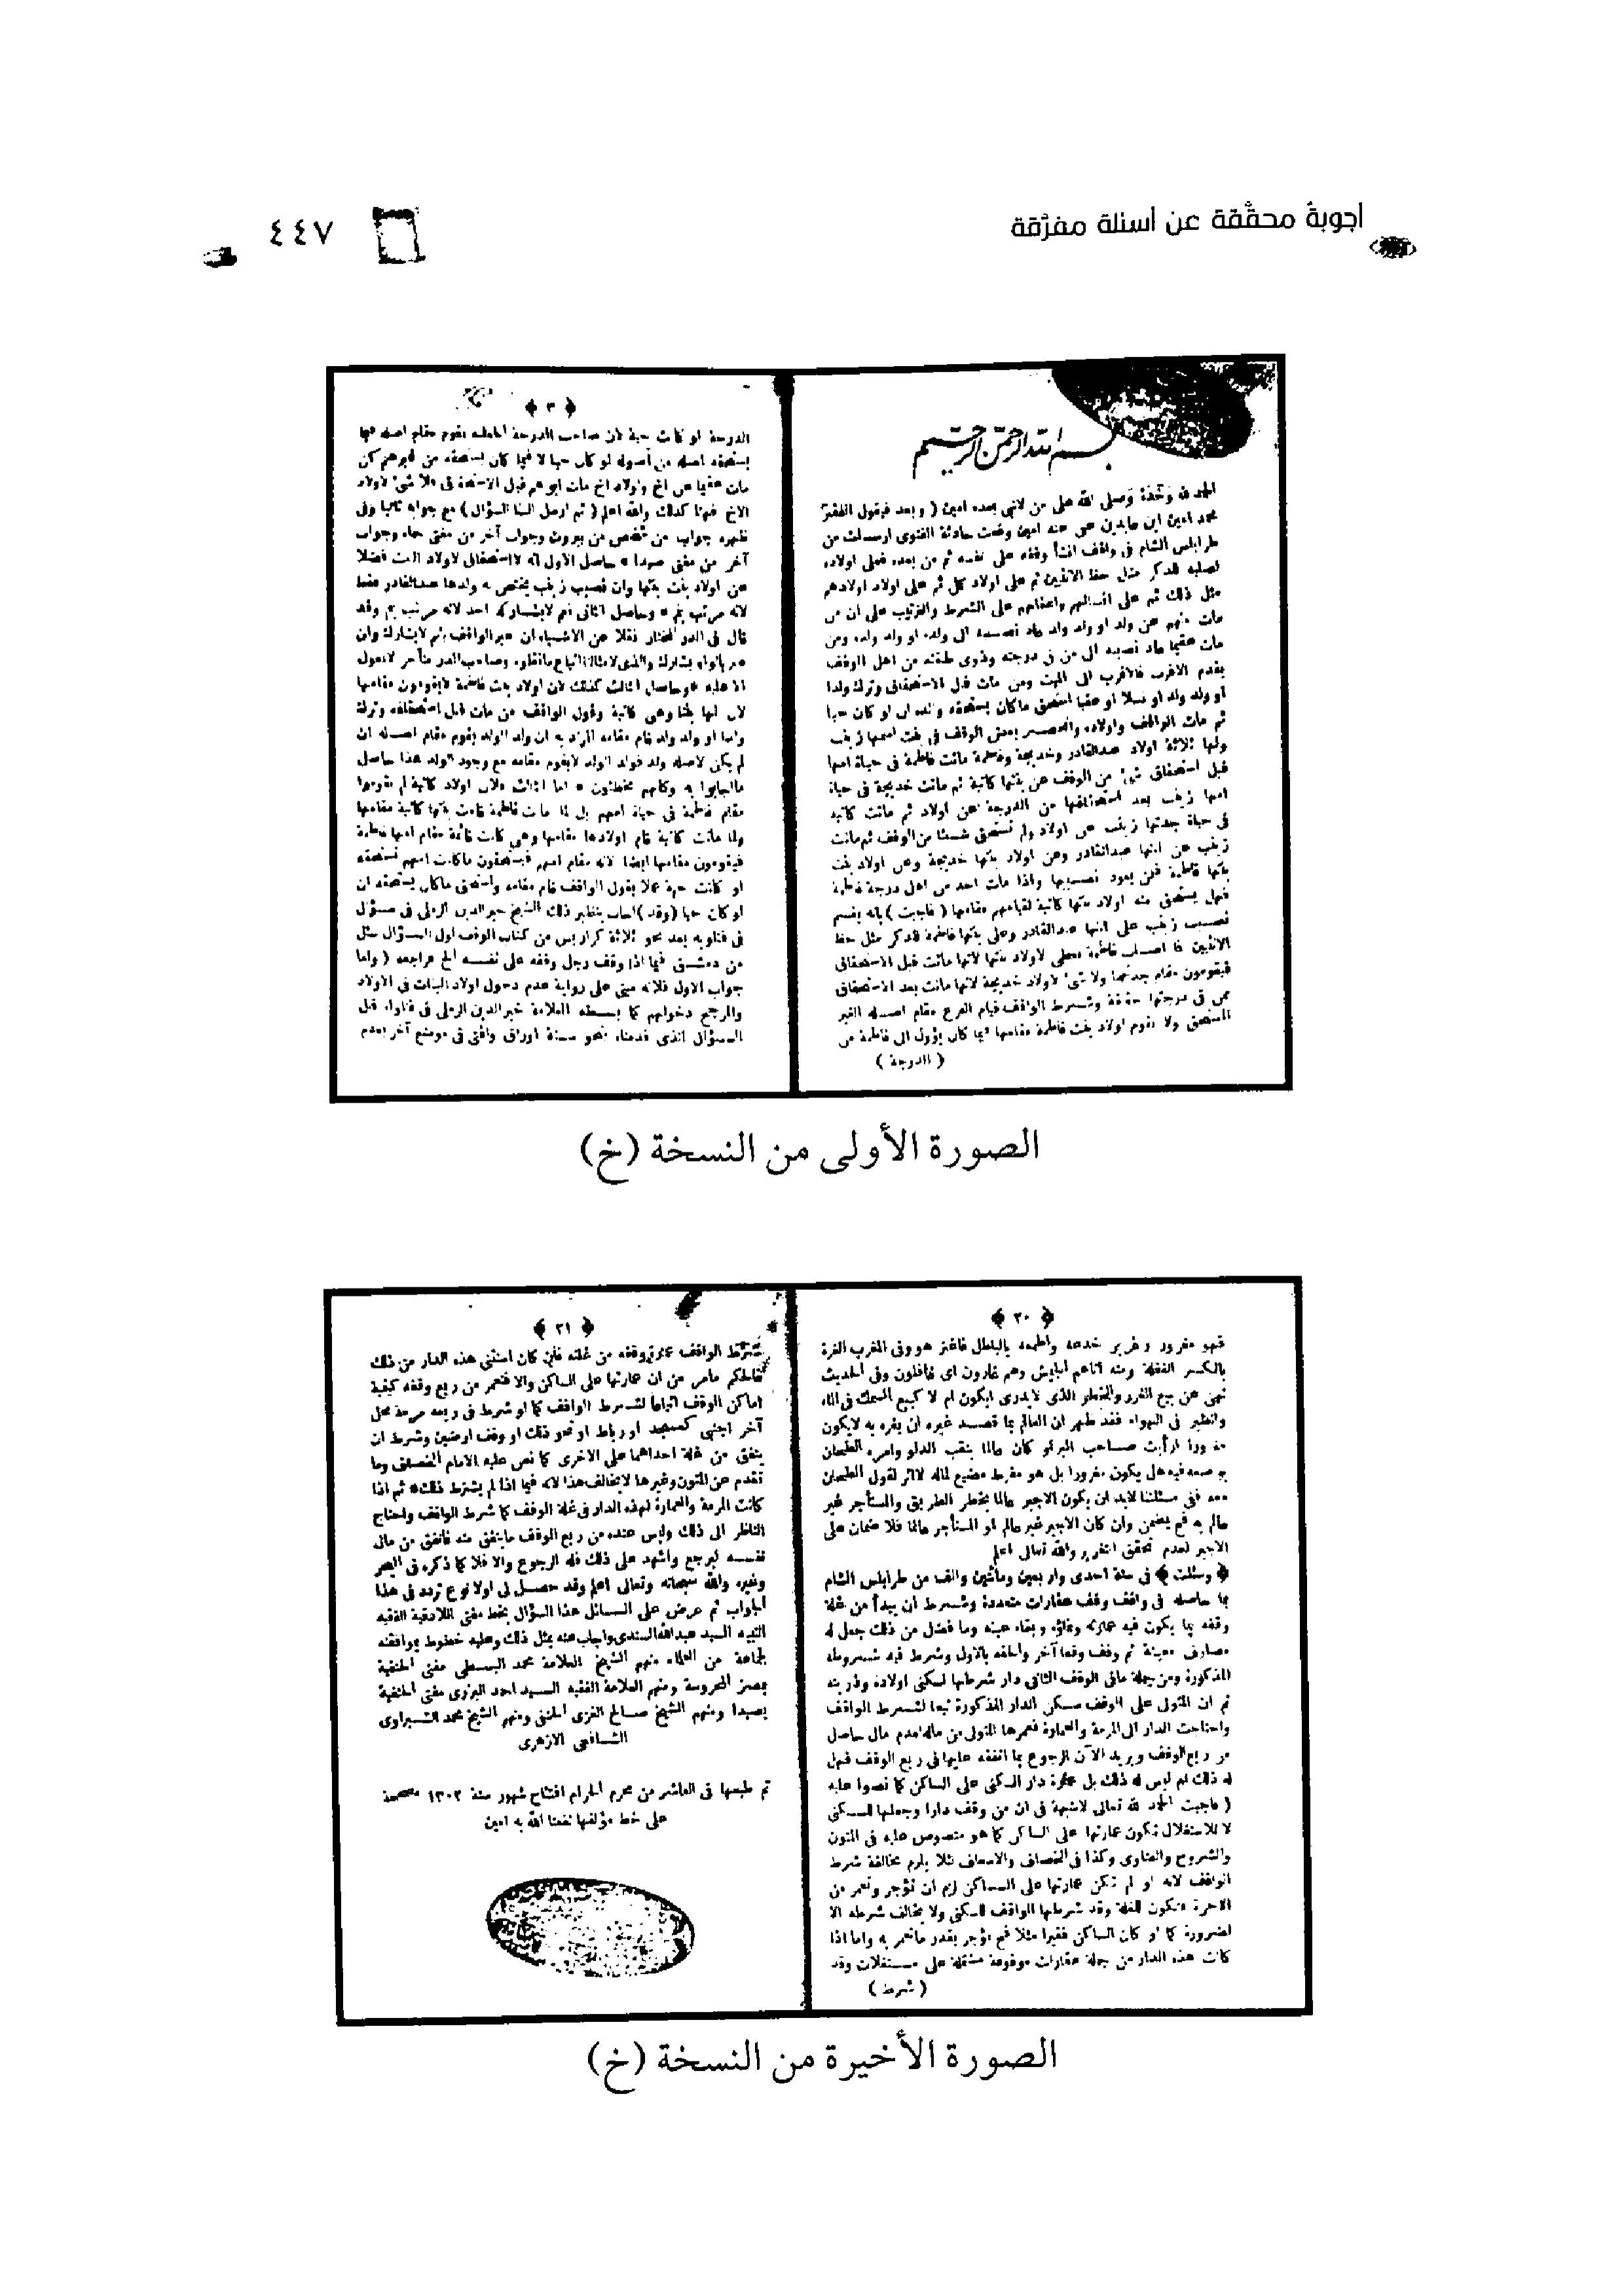 أجوبةٌ محقَّقة عن أسئلة مفرَّقة
٤٤٧
بسم الله الرحمن الرحيم
الحمد لله وحده وصلى الله على من لا نبي بعده امين ( وبعد فيقول الفقير
محمد امين ابن عابدين عفى عنه امين وقعت حادثة الفتوى ارسلت من
طرابلس الشام فى واقف انشأ وقفه على نفسه ثم من بعده فعلى اولاده
لصلبه للذكر مثل حظ الانثيين ثم على اولاد كل ثم على اولاد اولادهم
مثل ذلك ثم على انسالهم واعقابهم على الشرط والترتيب على ان من
مات منهم عن ولد او ولد ولد عاد نصيبه الى ولده او ولد ولده ومن
مات عقيما عاد نصيبه الى من فى درجته وذوى طبقته من اهل الوقف
يقدم الاقرب فالاقرب الى الميت ومن مات قبل الاستحقاق وترك ولدا
او ولد ولد او نسلا او عقبا استحق ماكان يستحقه والده ان لو كان حيا
ثم مات الواقف واولاده وانحصر بعض الوقف فى بنت اسمها زينب
ولها ثلاثة اولاد عبدالقادر وخديجة وفاطمة ماتت فاطمة فى حياة امها
قبل استحقاق شئ من الوقف عن بنتها كاتبة ثم ماتت خديجة فى حياة
امها زينب بعد استحقاقها من الدرجة عن اولاد ثم ماتت كاتبة
فى حياة جدتها زينب عن اولاد ولم تستحق شيئا من الوقف ثم ماتت
زينب عن ابنها عبدالقادر وعن اولاد بنتها خديجة وعن اولاد بنت
بنتها فاطمة فلمن يعود نصيبها واذا مات احد من اهل درجة فاطمة
فهل يستحق منه اولاد بنتها كاتبة لقيامهم مقامها ( فاجبت ) بانه يقسم
نصيب زينب على ابنها عبدالقادر وعلى بنتها فاطمة للذكر مثل حظ
الانثيين فما اصاب فاطمة يعطى لاولاد بنتها لانها ماتت قبل الاستحقاق
فيقومون مقام جدتهما ولا شئ لاولاد خديجة لانها ماتت بعد الاستحقاق
( الدرجة )
﴿ ٣ ﴾
مات عقيما عن اخ واولاد اخ مات ابوهم قبل الاستحقاق فلا شئ لاولاد
الاخ فهنا كذلك والله اعلم ( ثم ارسل الينا السؤال ) مع جوابه ثانيا وفى
ظهره جواب من شخص من بيروت وجواب آخر من مفتى حماه وجواب
آخر من مفتى صيدا * حاصل الاول انه لااستحقاق لاولاد البنت فضلا
عن اولاد بنت بنتها وان نصيب زينب يختص به ولدها عبدالقادر فقط
لانه مرتب بثم * وحاصل الثانى نعم لايشاركه احد لانه مرتب بثم وقد
لم يكن لاصله ولد فولد الولد لايقوم مقامه مع وجود الولد هذا حاصل
مااجابوا به وكلهم مخطئون * اما الثالث فلان اولاد كاتبة لم يقوموا
مقام فاطمة فى حياة امهم بل لما ماتت فاطمة قامت بنتها كاتبة مقامها
ولما ماتت كاتبة قام اولادها مقامها وهى كانت قائمة مقام امها فاطمة
فيقومون مقامها ايضا لانه مقام امهم فيستحقون ماكانت امهم تستحقه
لو كانت حية عملا بقول الواقف قام مقامه واستحق ماكان يستحقه ان
لو كان حيا (وقد) اجاب بنظير ذلك الشيخ خيرالدين الرملى فى سؤال
فى فتاويه بعد نحو ثلاثة كراريس من كتاب الوقف اول السؤال سئل
من دمشق فيما اذا وقف رجل وقفه على نفسه الخ فراجعه ( واما
جواب الاول فلانه مبنى على رواية عدم دخول اولاد البنات فى الاولاد
والمرجح دخولهم كما بسطه العلامة خيرالدين الرملى فى فتاواه قبل
السؤال الذى قدمناه بنحو ستة اوراق وافتى فى موضع آخر بعدم
الصورة الأولى من النسخة (خ)
﴿ ٢٠ ﴾
فهو مغرور وغرير خدعه واطمعه بالباطل فاغتر هو وفى المغرب الغرة
بالكسر الغفلة ومنه اتاهم الجيش وهم غارون اى غافلون وفى الحديث
نهى عن بيع الغرر والخطر الذى لايدرى ايكون ام لا كبيع السمك فى الماء
والطير فى الهواء فقد ظهر ان العالم بما قصد غيره ان يغره به لايكون
مغرورا ارأيت صاحب البر لو كان عالما بنقب الدلو وامره الطحان
بوضعه فيه هل يكون مغرورا بل هو مفرط مضيع لماله لااثر لقول الطحان
معه ففى مسئلتنا لابد ان يكون الاجير عالما بخطر الطريق والمستأجر غير
عالم به فح يضمن وان كان الاجير غير عالم او المستأجر عالما فلا ضمان على
الاجير لعدم تحقق التغرير والله تعالى اعلم
﴿ وسئلت ﴾ فى سنة احدى واربعين ومأتين والف من طرابلس الشام
بما حاصله فى واقف وقف عقارات متعددة وشرط ان يبدأ من غلة
وقفه بما يكون فيه عمارته ونماؤه وبقاء عينه وما فضل من ذلك جعل له
مصارف معينة ثم وقف وقفا آخر والحقه بالاول وشرط فيه شروطه
المذكورة ومن جملة مافى الوقف الثانى دار شرطها لسكنى اولاده وذريته
ثم ان المتولى على الوقف سكن الدار المذكورة تبعا لشرط الواقف
واحتاجت الدار الى المرمة والعمارة فعمرها المتولى من ماله لعدم مال حاصل
من ريع الوقف ويريد الآن الرجوع بما انفقه عليها فى ريع الوقف فهل
له ذلك ام ليس له ذلك بل عمارة دار السكنى على الساكن كما نصوا عليه
( فاجبت الحمد لله تعالى لاشبهة فى ان من وقف دارا وجعلها للسكنى
لا للاستغلال تكون عمارتها على الساكن كما هو منصوص عليه فى المتون
والشروح والفتاوى وكذا فى الخصاف والاسعاف لئلا يلزم مخالفة شرط
الواقف لانه لو لم تكن عمارتها على الساكن لزم ان تؤجر وتعمر من
الاجرة فتكون للغلة وقد شرطها الواقف للسكنى ولا يخالف شرطه الا
لضرورة كما لو كان الساكن فقيرا مثلا فح تؤجر بقدر ماتعمر به واما اذا
كانت هذه الدار من جملة عقارات موقوفة مشتملة على مستغلات وقد
( شرط )
﴿ ٢١ ﴾
شرط الواقف عمارة وقفه من غلته فان كان استثنى هذه الدار من ذلك
فالحكم مامر من ان عمارتها على الساكن والا فتعمر من ريع وقفه كبقية
اماكن الوقف اتباعا لشرط الواقف كما لو شرط فى ريعه مرمة محل
آخر اجنبى كمسجد او رباط او نحو ذلك او وقف ارضين وشرط ان
ينفق من غلة احداهما على الاخرى كما نص عليه الامام الخصاف وما
تقدم عن المتون وغيرها لايخالف هذا لانه فيما اذا لم يشترط ذلك * ثم اذا
كانت المرمة والعمارة لهذه الدار فى غلة الوقف كما شرط الواقف واحتاج
الناظر الى ذلك وليس عنده من ريع الوقف ماينفق منه فأنفق من مال
نفسه ليرجع واشهد على ذلك فله الرجوع والا فلا كما ذكره فى البحر
وغيره والله سبحانه وتعالى اعلم وقد حصل لى اولا نوع تردد فى هذا
الجواب ثم عرض على السائل هذا السؤال بخط مفتى اللاذقية الفقيه
النبيه السيد عبدالله السندى واجاب عنه بمثل ذلك وعليه خطوط بموافقته
لجماعة من العلماء منهم الشيخ العلامة محمد البسطى مفتى الحنفية
بمصر المحروسة ومنهم العلامة الفقيه السيد احمد البزرى مفتى الحنفية
بصيدا ومنهم الشيخ صالح الغزى الحنفى ومنهم الشيخ محمد الشبراوى
الشافعى الازهرى
تم طبعها فى العاشر من محرم الحرام افتتاح شهور سنة ١٣٠٢ مصححة
على خط مؤلفها نفعنا الله به امين
الصورة الأخيرة من النسخة (خ)